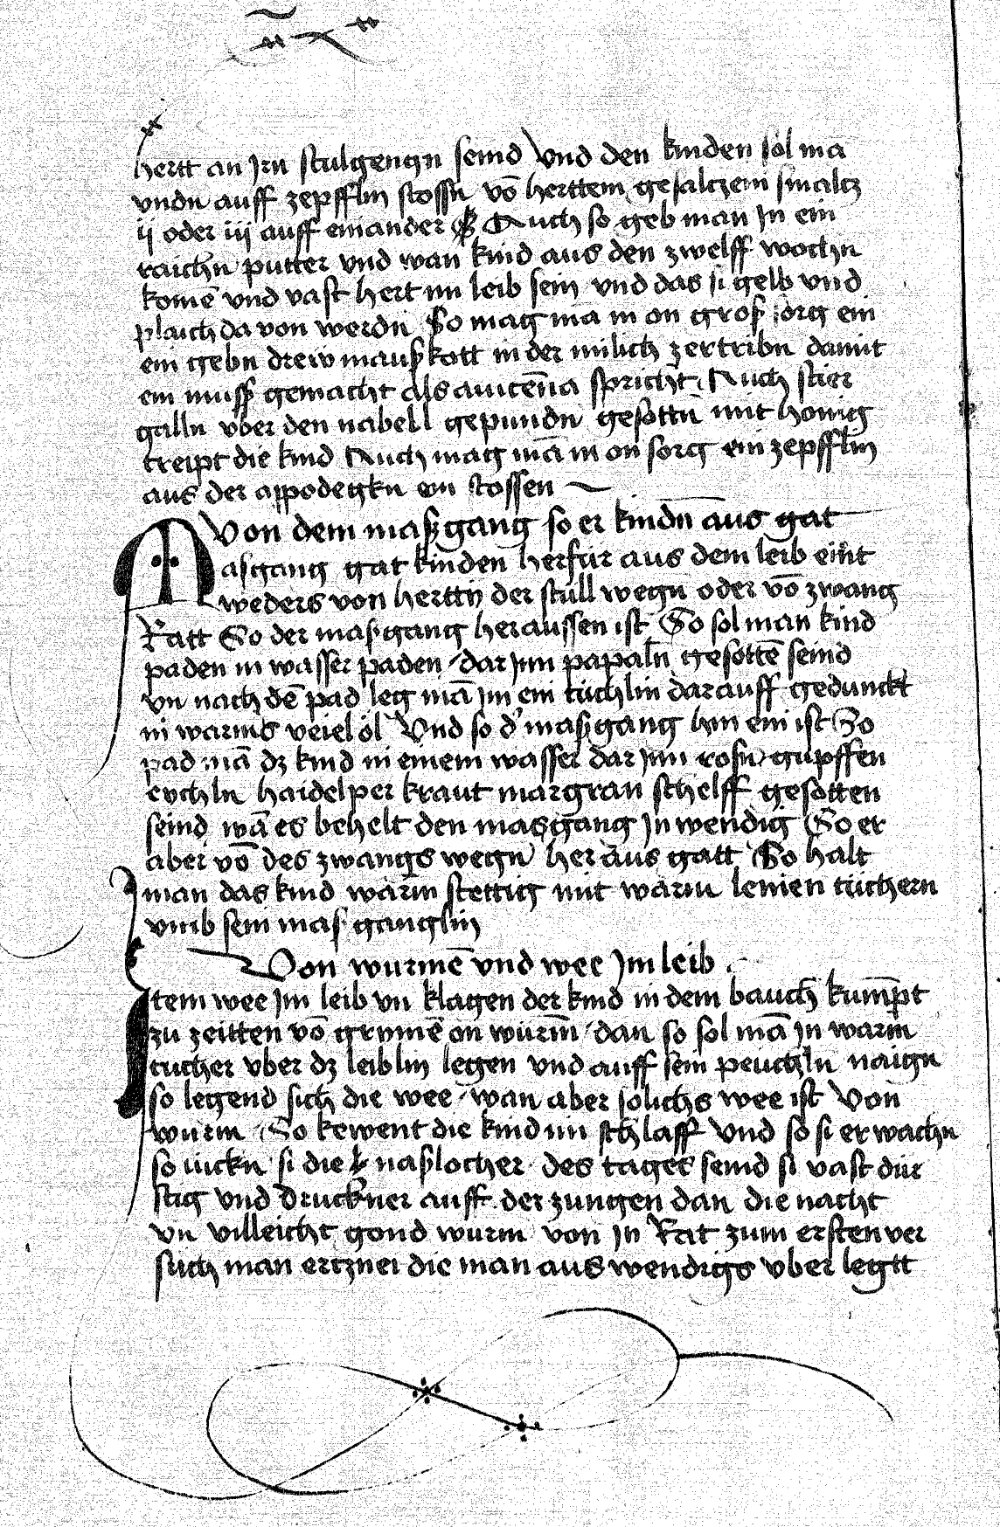 hertt an Jrn stulgengñ seind Vnd den kinden sol mā
vndn auff zepfflin stossñ vō herttem gesalczem smalcz
ij oder iij auff einander Auch so geb man Jn ein
raichñ putter vnd wan kind aus den zwelff wochñ
komē vnd vast hert im leib sein vnd das si gelb vnd
plaich da von werdñ So mag mā in on groß sorg ein
ein gebñ drew mauß kott in der milich zertribñ damit
ein muß gemacht als auicēna spricht Auch stier
galln vber den nabell gepundñ gesottñ mit honig
treipt die kind Auch mag mā in on sorg ein zepfflin
aus der appodegkñ ein stossen
Von dem maßgang so er kindñ aus gat
Masgang gat kinden herfür aus dem leib eint
weders von herttn der stull wegñ oder vō zwang
Ratt So der masgang heraussen ist So sol man kind
paden in wasser paden dar Jnn papaln gesottē seind
vn nach dē pad leg mā im ein tüchlin darauff gedunckt
in warms veiel öl Vnd so d' maßgang hin ein ist So
pad mā dz kind in einem wasser dar Jnn rosñ gupffen
eychln haidelper kraut margran schelff gesotten
seind wā es behelt den masgang Jnwendig So er
aber vō des zwangs wegñ her aus gatt So halt
man das kind warm stettig mit warm leinen tüchern
vmb sein mas ganglin
Von wurmē vnd wee Jm leib
Item wee Jm leib vn klagen der kind in dem bauch kumpt
zu zeitten vō grymē on würm dan so sol mā Jn warm
tücher vber dz leiblin legen vnd auff sein peuchln naign
so legend sich die wee wan aber solichs wee ist Von
würm So kewent die kind im schlaff vnd so si erwachñ
so iuckñ si die naßlocher des tages seind si vast dür
stig vnd druckner auff der zungen dan die nacht
vn villeicht gond wurm von Jn Rat zum ersten ver
such man ertznei die man auswendigs vber legtt